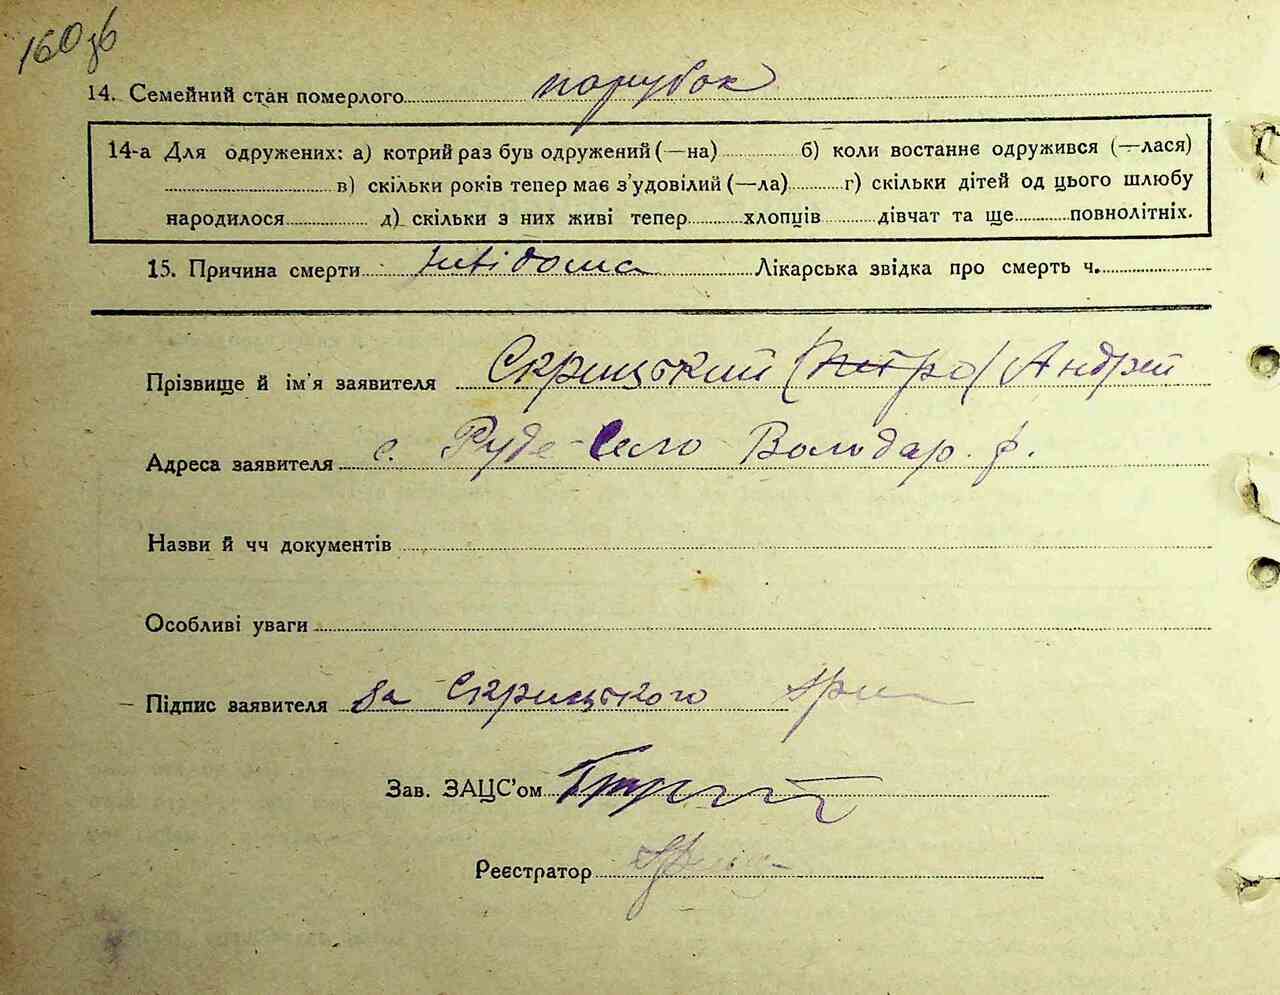 160зв
14. Семейний стан померлого парубок
14-а Для одружених: а) котрий раз був одружений (—на) б) коли востаннє одружився (—лася)
в) скільки років тепер має з’удовілий (—ла) г) скільки дітей од цього шлюбу
народилося д) скільки з них живі тепер хлопців дівчат та ще повнолітніх.
15. Причина смерти невідома Лікарська звідка про смерть ч.
Прізвище й ім’я заявителя Скрицький (Петро) Андрей
Адреса заявителя с. Руде-Село Володар. р.
Назви й чч документів
Особливі уваги
Підпис заявителя за Скрицького
Зав. ЗАЦС’ом
Реєстратор